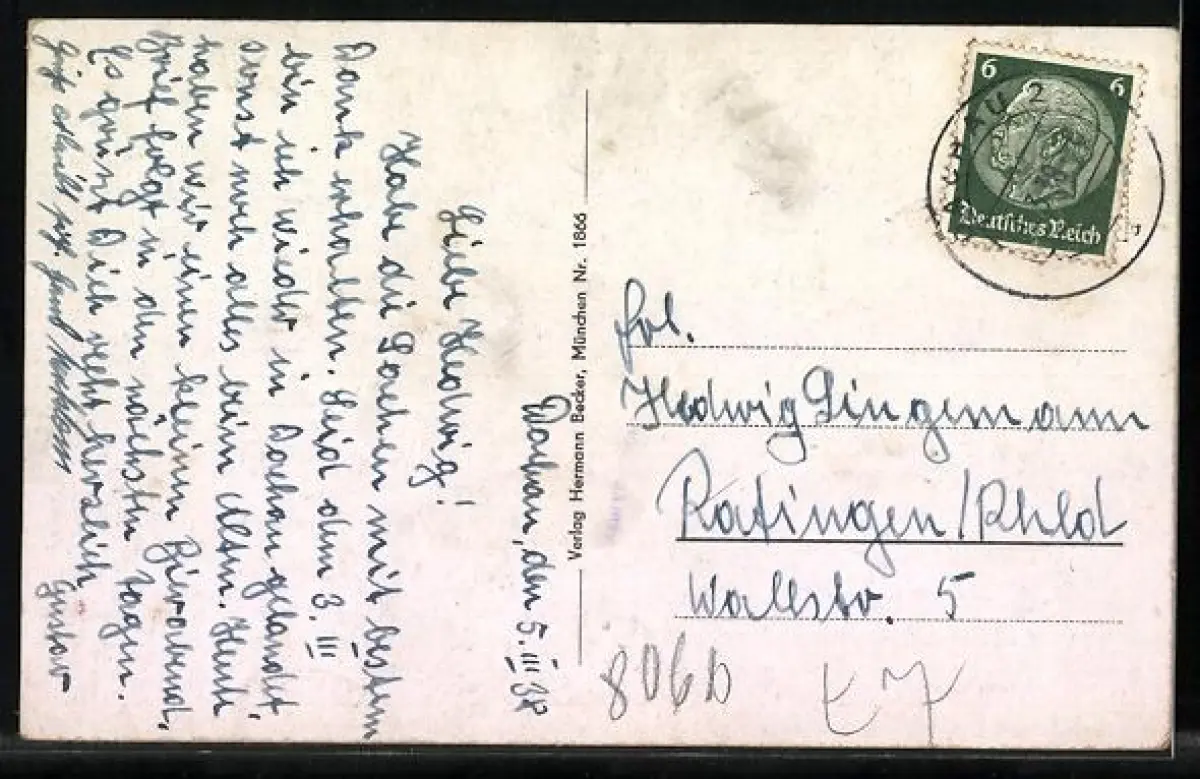 Dachau, den 5. III 38
Liebe Hedwig!
Habe die Sachen mit bestem
Dank erhalten. Seid dem 3. III
bin ich wieder in Dachau gelandet,
sonst noch alles beim Alten. Heute
haben wir einen kleinen Bierabend,
Brief folgt in den nächsten Tagen.
Es grüßt Dich recht herzlich
Gustav
Verlag Hermann Becker, München Nr. 1866
6 6
Deutsches Reich
AU 2
Frl.
Hedwig Lingemann
Ratingen/Rhld
Wallstr. 5
806b
t 7